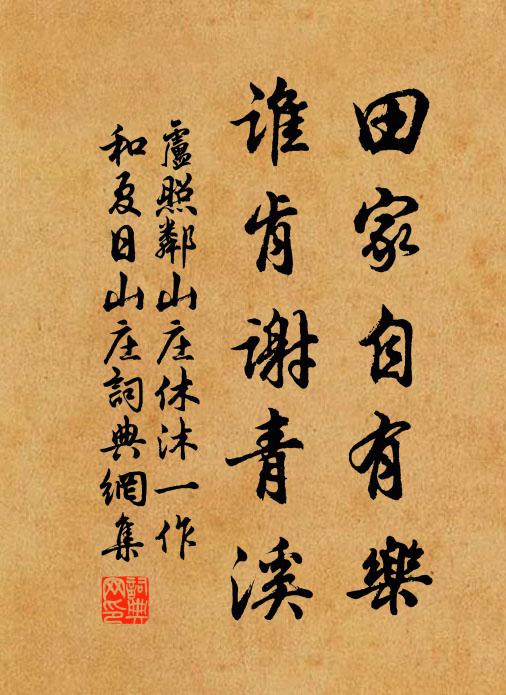 田家自有樂
誰肯謝青溪
盧照鄰山庄休沐一作
和夏日山庄詞典網集
詞典网印